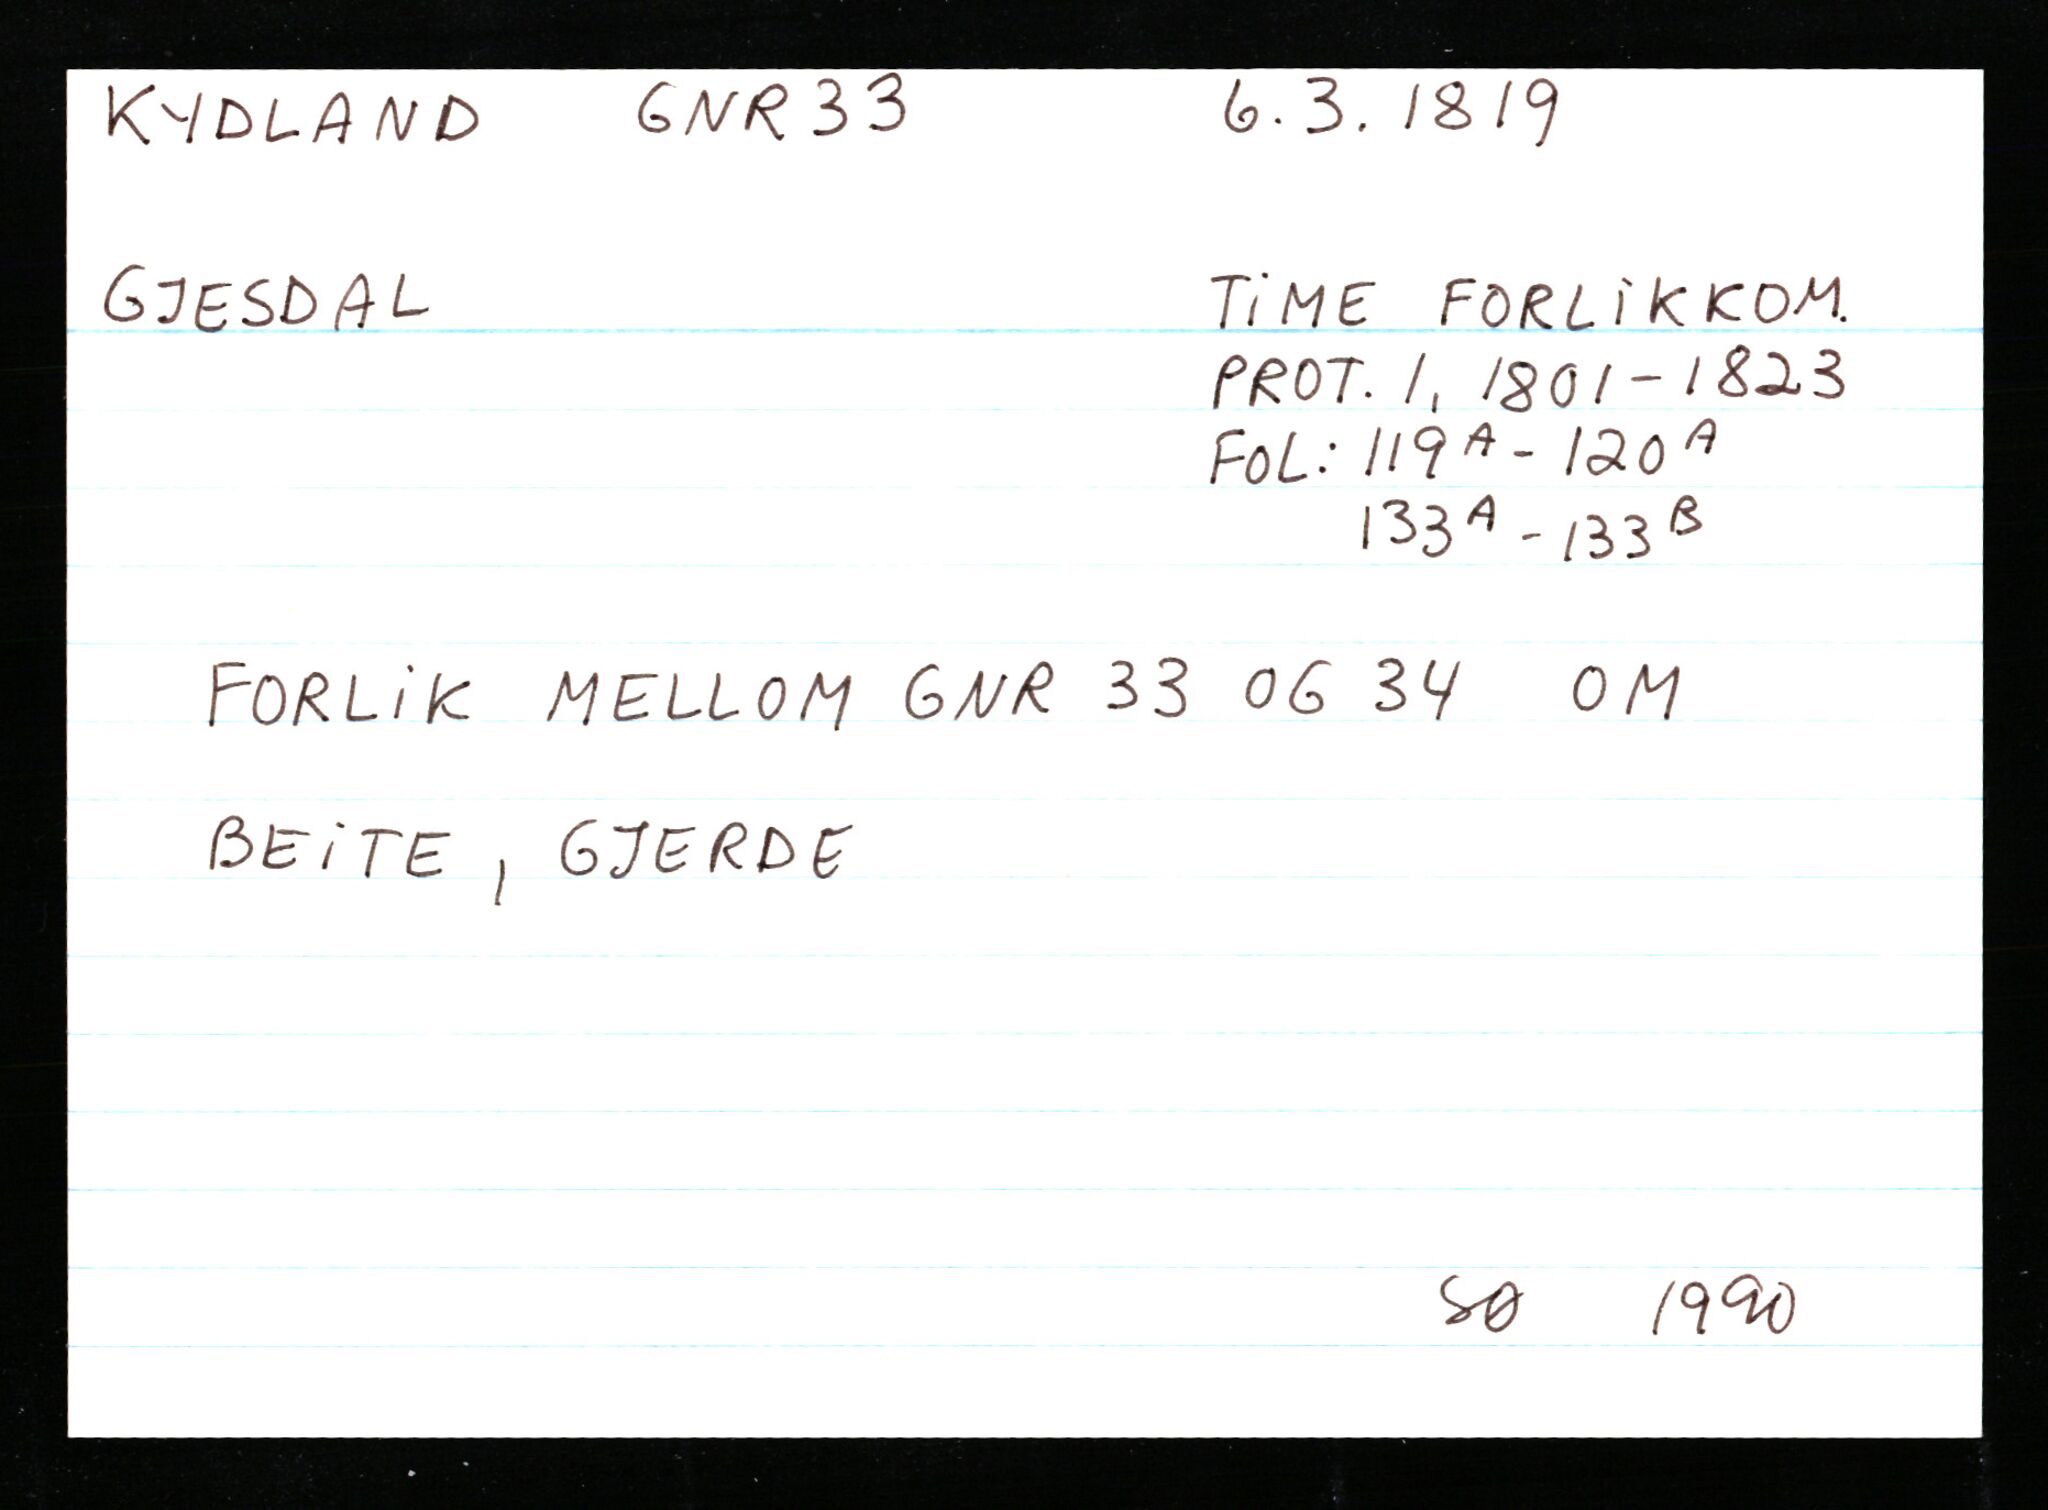 KYDLAND GNR 33 6.3.1819
GJESDAL TiME FORLiKKOM.
PROT. 1, 1801-1823
FOL: 119 A - 120 A
133 A - 133 B
FORLiK MELLOM GNR 33 OG 34 OM
BEiTE, GJERDE
SØ 1990